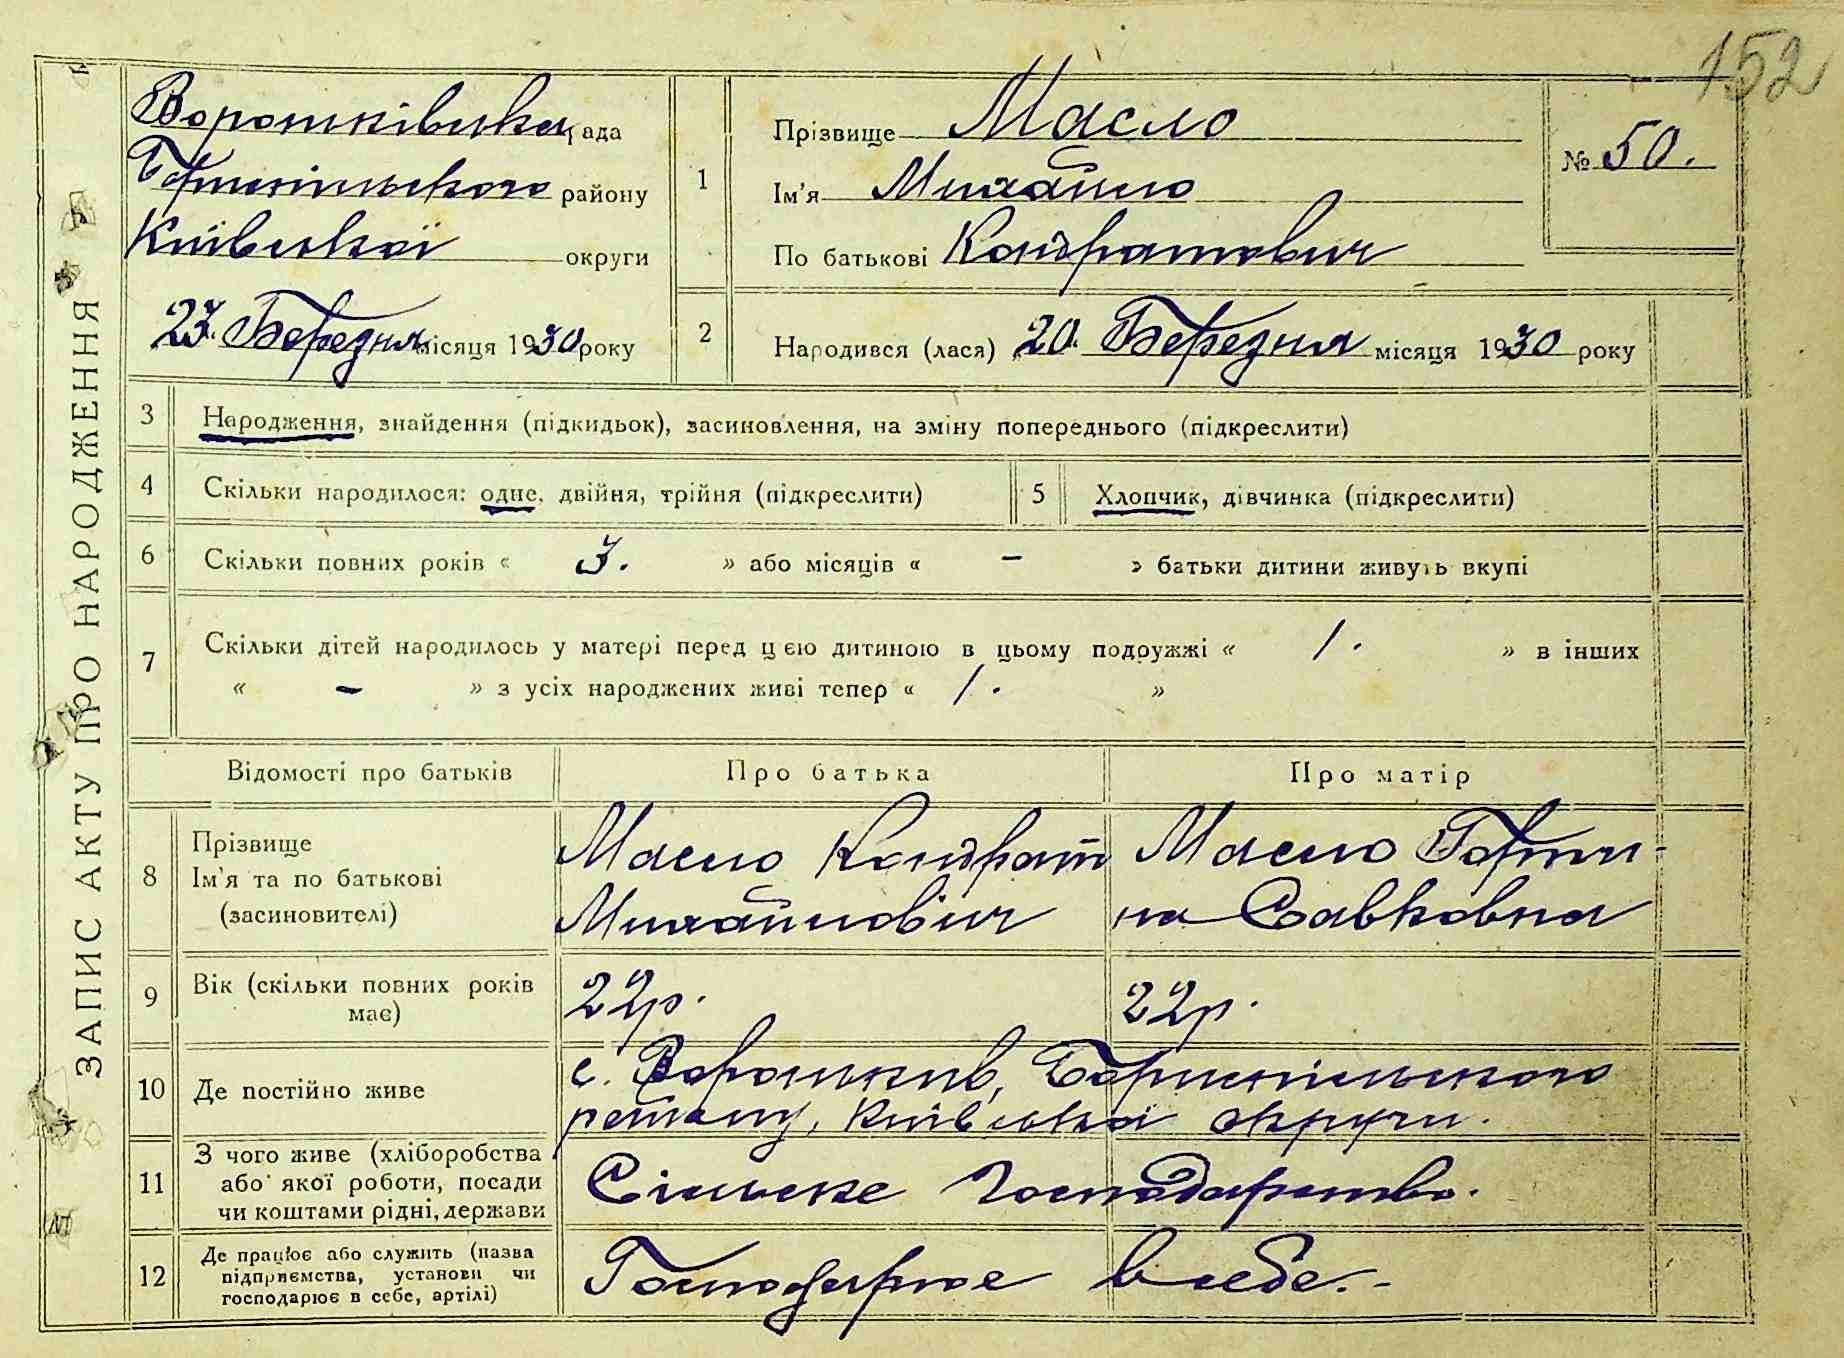 152
ЗАПИС АКТУ ПРО НАРОДЖЕННЯ
Вороньківська рада
Бориспільського району
Київської округи
23. Березня місяця 1930 року
1
Прізвище Масло
Ім'я Михайло
По батькові Кондратович
№ 50.
2
Народився (лася) „20. Березня місяця 1930 року
3 Народження, знайдення (підкидьок), засиновлення, на зміну попереднього (підкреслити)
4 Скільки народилося: одне, двійня, трійня (підкреслити)
5 Хлопчик, дівчинка (підкреслити)
6 Скільки повних років « 3. » або місяців « – » батьки дитини живуть вкупі
7 Скільки дітей народилось у матері перед цією дитиною в цьому подружжі « 1. » в інших
« – » з усіх народжених живі тепер « 1. »
Відомості про батьків Про батька Про матір
8 Прізвище
Ім'я та по батькові
(засиновителі)
Масло Кондрат
Михайлович
Масло Горпи-
на Савковна
9 Вік (скільки повних років
має)
22р. 22р.
10 Де постійно живе
с. Вороньків, Бориспільського
району, Київської округи.
11 З чого живе (хліборобства
або якої роботи, посади
чи коштами рідні, держави
Сільське господарство.
12 Де працює або служить (назва
підприємства, установи чи
господарює в себе, артілі)
Господарює в себе.-